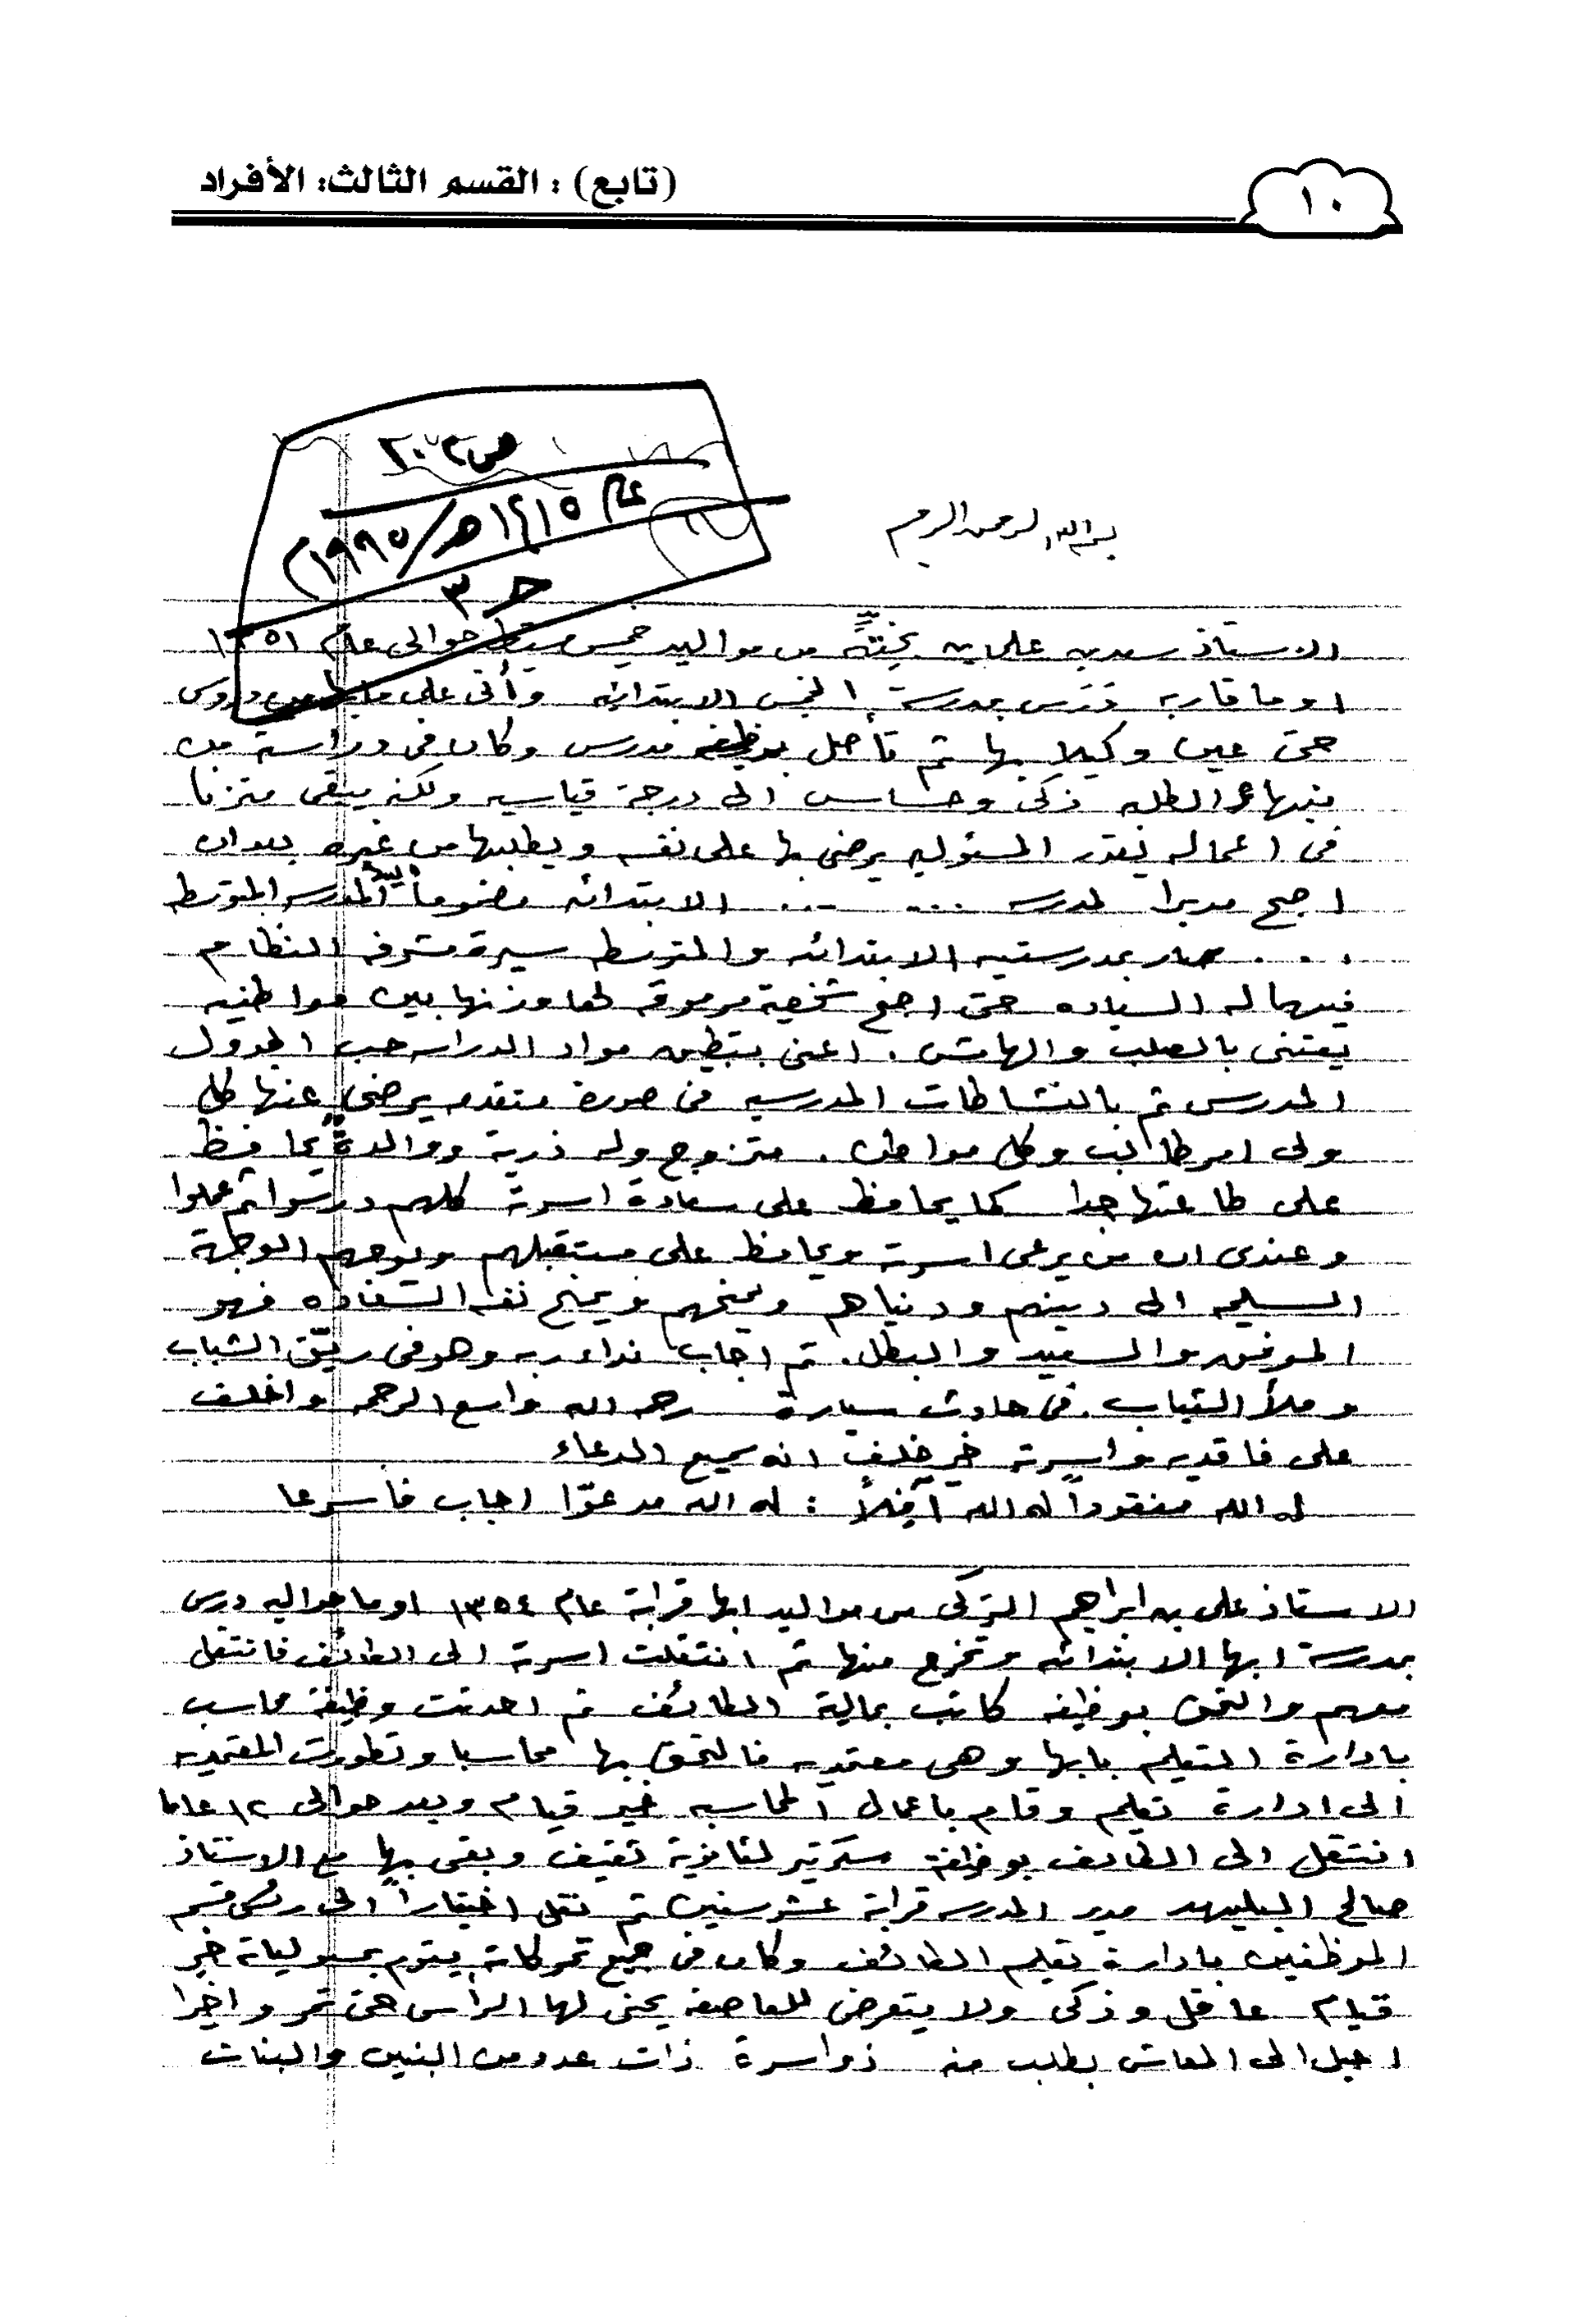 ١٠
(تابع) : القسم الثالث: الأفراد
ص ٢٠٢
عام ١٤١٥هـ/١٩٩٥م
حـ ٣
بسم الله الرحمن الرحيم
الاستاذ سعد بن علي بن من مواليد خميس حوالى عام ١٣٥١
او ما قاربه درس بمدرسة الخميس الابتدائيه وأتى على ما بها من دروس
حتى عين وكيلا بها ثم تأصل بوظيفه مدرس وكان فى دراسته من
الطلبه ذكى وحساس الى درجة قياسيه ولكنه يبقى متزنا
فى اعماله يقدر المسئوليه يرضى بها على نفسه ويطلبها من غيره بعد ان
اصبح مديرا لمدرسه ... ... الابتدائه مضموماً اليها المدرسه المتوسطه
... سار بمدرستيه الابتدائه والمتوسطه سيرة مشرفه النظام
فيهما له السياده حتى اصبح شخصية مرموقه لها وزنها بين مواطنيه
يعتنى بالصلب والهامش. اعنى بتطبيق مواد الدراسه حسب الجدول
المدرسى ثم بالنشاطات المدرسيه فى صورة متقدمه يرضى عنها كل
ولى امر طالب وكل مواطن. متزوج وله ذرية ووالدة يحافظ
على طاعتها جدا كما يحافظ على سعادة اسرته كلهم درسوا ثم عملوا
وعندى ان من يرعى اسرته ويحافظ على مستقبلهم ويوجههم الوجهة
السليمه الى دينهم ودنياهم ويمنحهم ويمنح نفسه السعاده فهو
الموفق والسعيد والبطل. ثم اجاب نداء ربه وهو فى ريّق الشباب
وملأ الشباب. فى حادث سيارة رحمه الله واسع الرحمه واخلف
على فاقديه واسرته خير خلف انه سميع الدعاء
لله الله مفقوداً لله الله آفلاً : لله الله مدعوّا اجاب فأسرعا
الاستاذ على بن ابراهيم التركى من مواليد ابها قرابة عام ١٣٥٤ او ما حواليه درس
بمدرسة ابها الابتدائه وتخرج منها ثم انتقلت اسرته الى الطائف فانتقل
معهم والتحق بوظيفه كاتب بمالية الطائف ثم احدثت وظيفة محاسب
بادارة التعليم بابها وهى معتمديه فالتحق بها محاسبا وتطورت المعتمديه
الى ادارة تعليم وقام باعمال المحاسبه خير قيام وبعد حوالى ١٢ عاما
انتقل الى الطائف بوظيفة سكرتير لثانوية ثقيف وبقى بها مع الاستاذ
صالح البليهد مدير المدرسه قرابة عشر سنين ثم نقل اختياراً الى رئيس قسم
الموظفين بادارة تعليم الطائف وكان فى جميع تحركاته يقوم بمسولياته خير
قيام عاقل وذكى ولا يتعرض للعاصفه يحنى لها الرأس حتى تمر واخيرا
احيل الى المعاش بطلب منه ذو اسرة ذات عدد من البنين والبنات